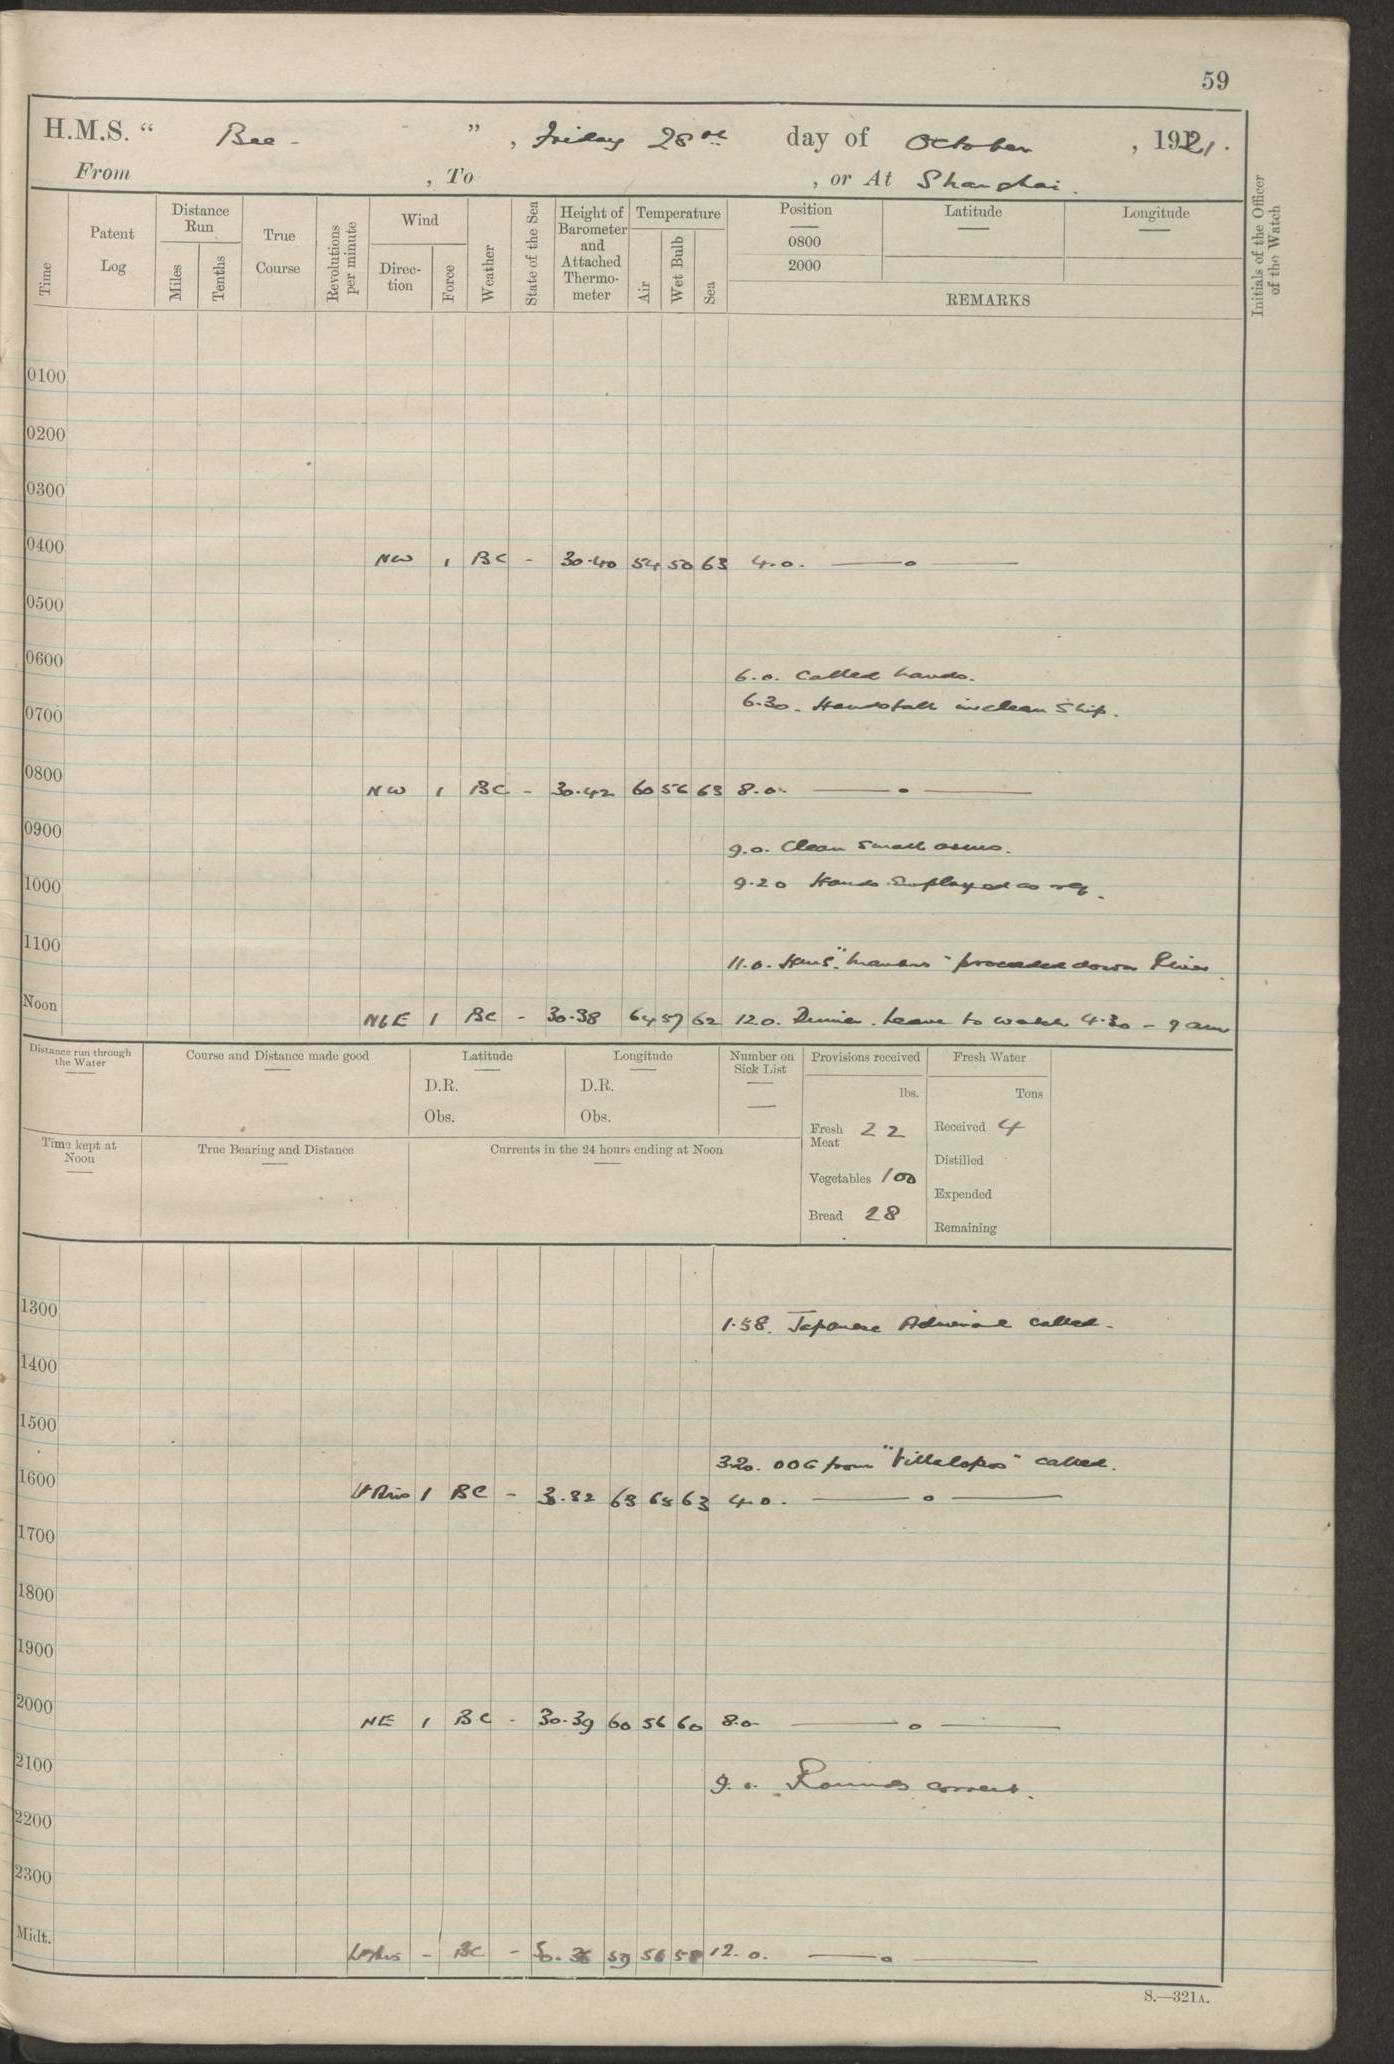 59
H.M.S. “ Bee - ” , Friday 28th day of October , 1921.
From , To , or At Shanghai.
Time
Patent Log
Distance Run
Miles
Tenths
True Course
Revolutions per minute
Wind
Direction
Force
Weather
State of the Sea
Height of Barometer and Attached Thermometer
Temperature
Air
Wet Bulb
Sea
Position
0800
2000
Latitude
Longitude
REMARKS
Initials of the Officer of the Watch
0100
0200
0300
0400
NW 1 BC - 30.40 54 50 63 4.0. — o —
0500
0600
6.0. Called hands.
6.30. Hands fall in clean Ship.
0700
0800
NW 1 BC - 30.42 60 56 63 8.0. — o —
0900
9.0. Clean small arms.
9.20 Hands Employed as req.
1000
1100
11.0. proceeded down River.
Noon
NbE 1 BC - 30.38 64 57 62 12.0. Dinner. Leave to watch 4.30 - 7 am
Distance run through the Water
Course and Distance made good
Latitude
D.R.
Obs.
Longitude
D.R.
Obs.
Number on Sick List
—
Provisions received
lbs.
Fresh Meat 22
Vegetables 100
Bread 28
Fresh Water
Tons
Received 4
Distilled
Expended
Remaining
Time kept at Noon
True Bearing and Distance
Currents in the 24 hours ending at Noon
1300
1.58. Japanese Admiral called.
1400
1500
3.20. OOG from "Villalobos" called.
1600
1 BC - 30.32 63 63 4.0. — o —
1700
1800
1900
2000
NE 1 BC - 30.39 60 56 60 8.0 — o —
2100
9.0. Rounds correct.
2200
2300
Midt.
- BC - 30.36 59 56 58 12.0. — o —
S.—321A.